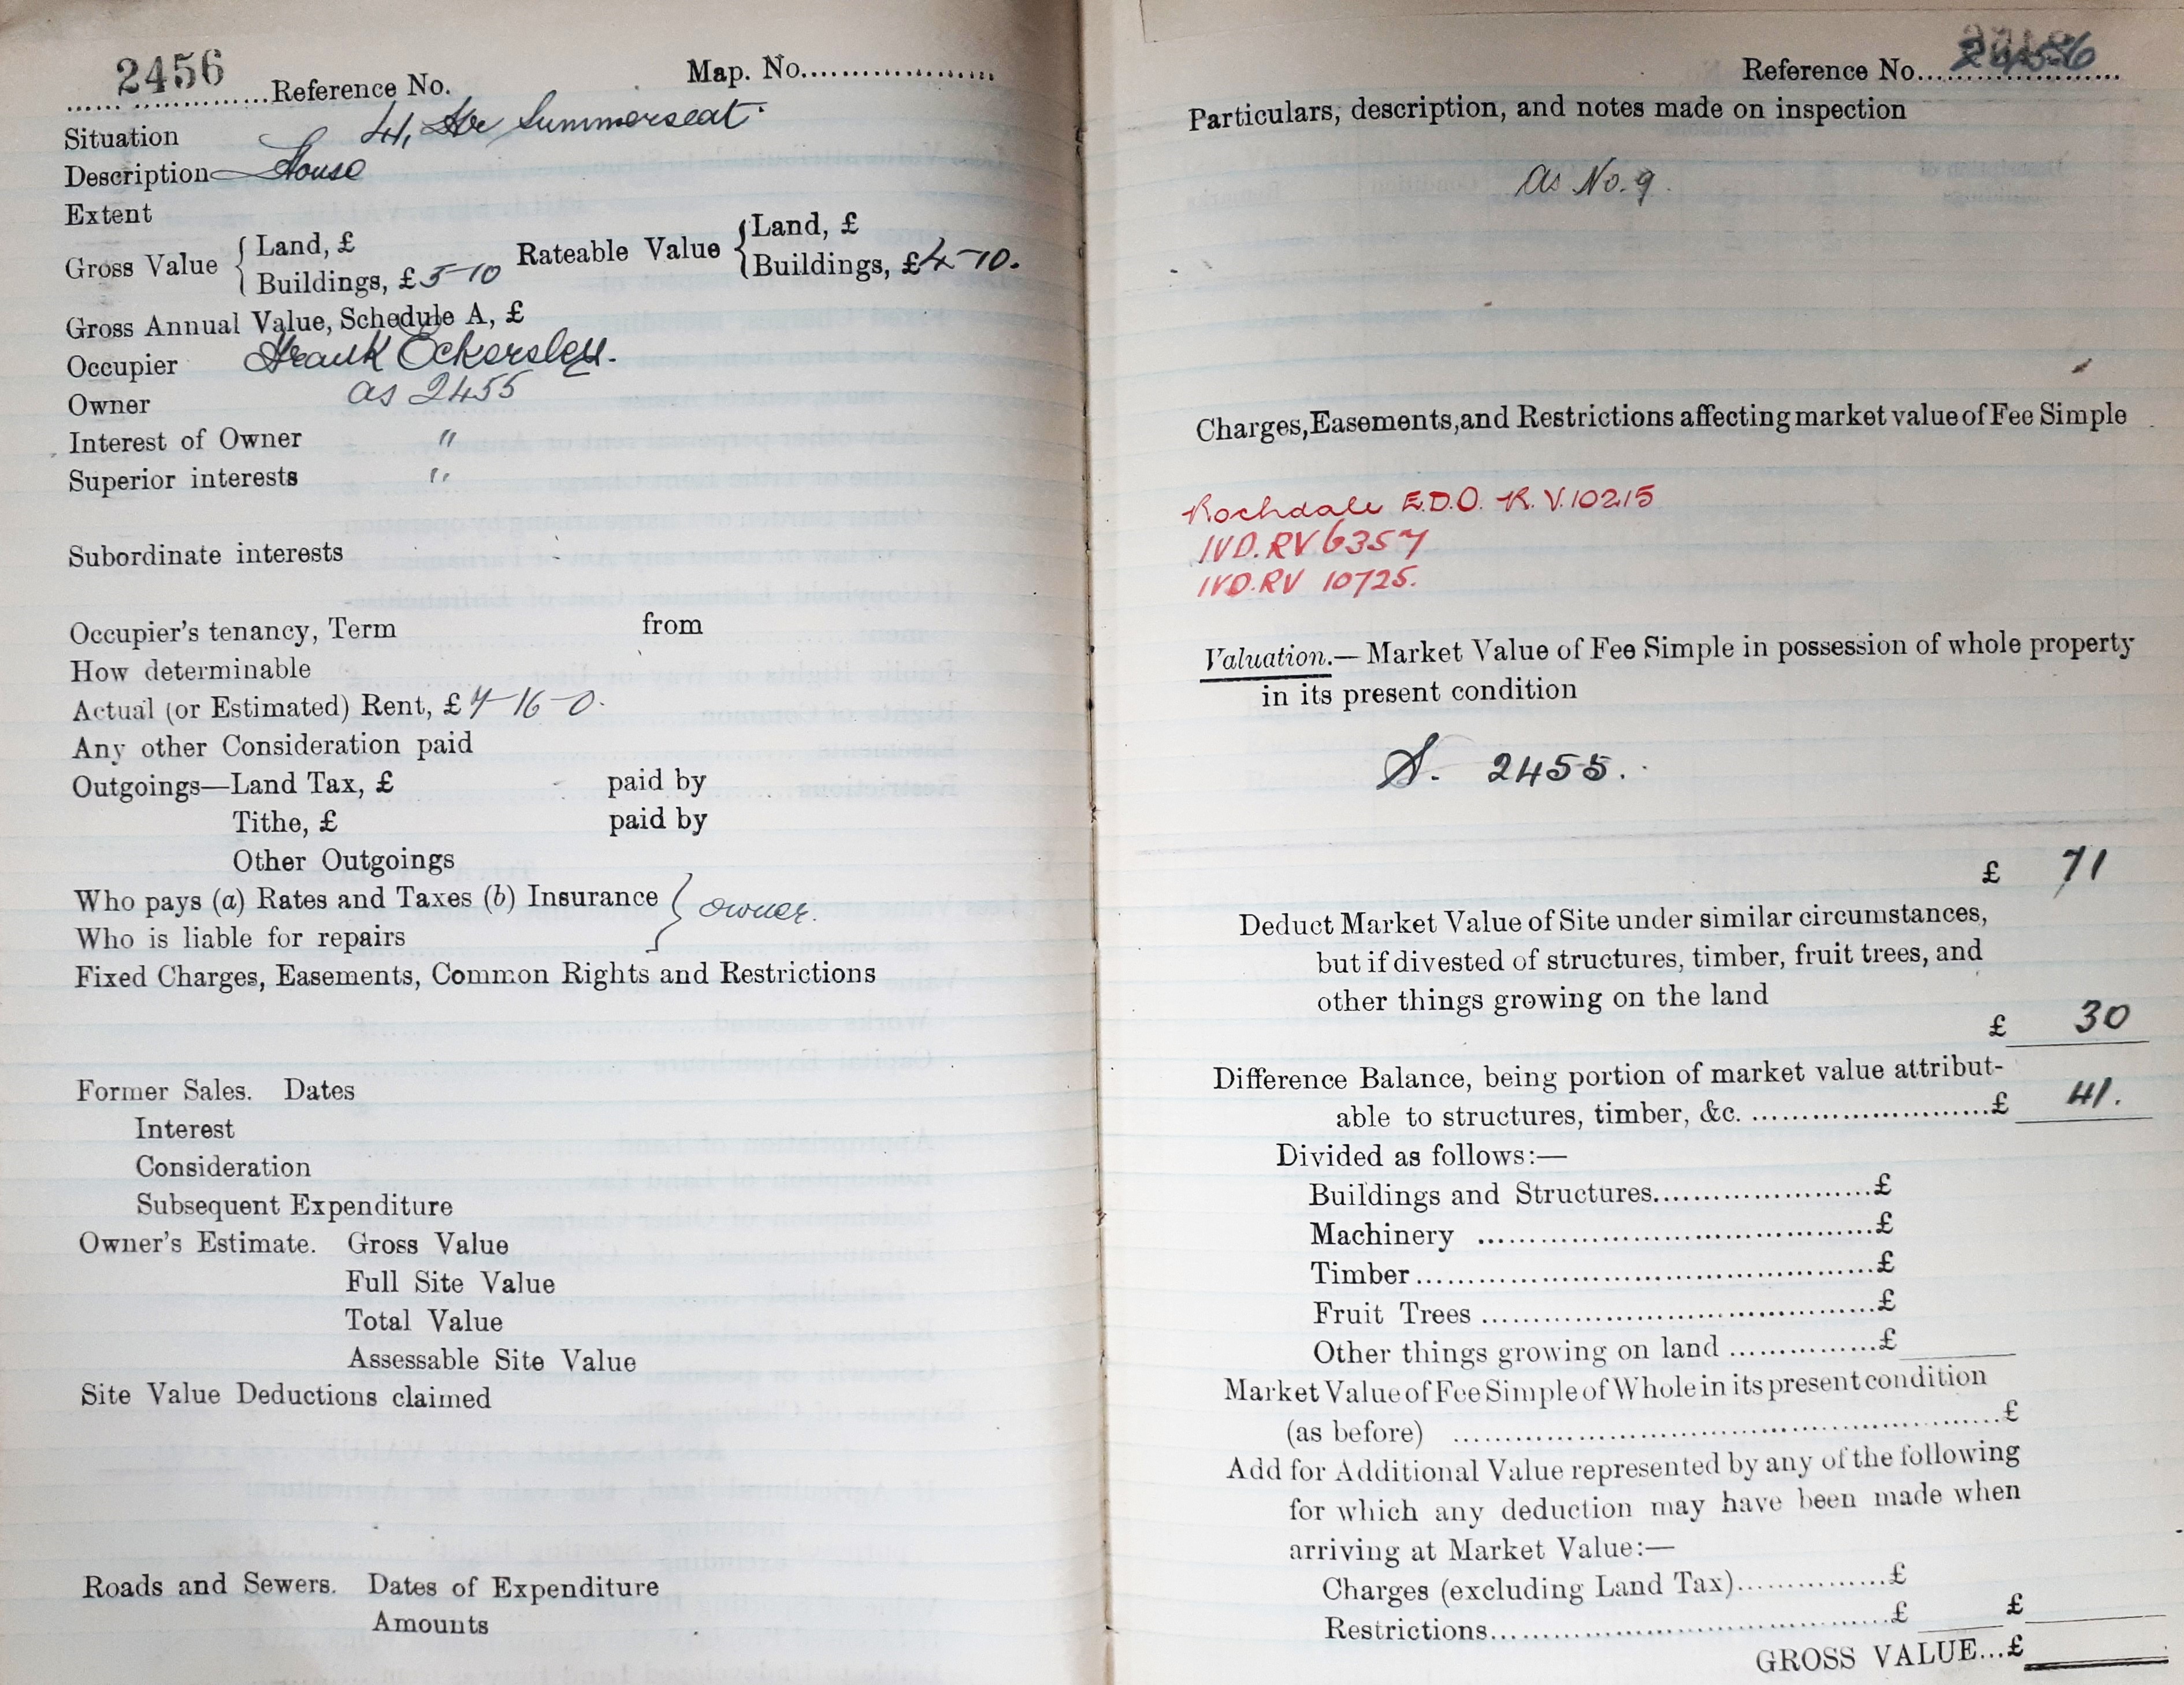 2456
Reference No. Map. No.
Situation 41, Summerseat.
Description House
Extent
Gross Value { Land, £
Buildings, £ 5-10
Rateable Value { Land, £
Buildings, £ 4-10.
Gross Annual Value, Schedule A, £
Occupier Frank Eckersley.
Owner as 2455
Interest of Owner "
Superior interests "
Subordinate interests
Occupier's tenancy, Term from
How determinable
Actual (or Estimated) Rent, £ 7-16-0.
Any other Consideration paid
Outgoings—Land Tax, £ paid by
Tithe, £ paid by
Other Outgoings
Who pays (a) Rates and Taxes (b) Insurance } owner.
Who is liable for repairs
Fixed Charges, Easements, Common Rights and Restrictions
Former Sales. Dates
Interest
Consideration
Subsequent Expenditure
Owner's Estimate. Gross Value
Full Site Value
Total Value
Assessable Site Value
Site Value Deductions claimed
Roads and Sewers. Dates of Expenditure
Amounts
Reference No.
Particulars, description, and notes made on inspection
As No. 9.
Charges, Easements, and Restrictions affecting market value of Fee Simple
Rochdale E.D.O. R.V. 10215
IVD. RV 6357
IVD. RV 10725.
Valuation.— Market Value of Fee Simple in possession of whole property
in its present condition
S. 2455.
£ 71
Deduct Market Value of Site under similar circumstances,
but if divested of structures, timber, fruit trees, and
other things growing on the land
£ 30
Difference Balance, being portion of market value attribut-
able to structures, timber, &c. £ 41.
Divided as follows:—
Buildings and Structures £
Machinery £
Timber £
Fruit Trees £
Other things growing on land £
Market Value of Fee Simple of Whole in its present condition
(as before) £
Add for Additional Value represented by any of the following
for which any deduction may have been made when
arriving at Market Value:—
Charges (excluding Land Tax) £
Restrictions £ £
GROSS VALUE...£